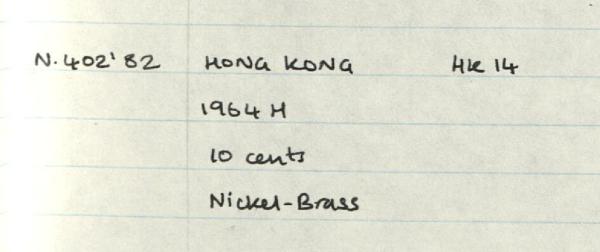 N.402'82 HONG KONG HK 14
1964 H
10 cents
Nickel-Brass